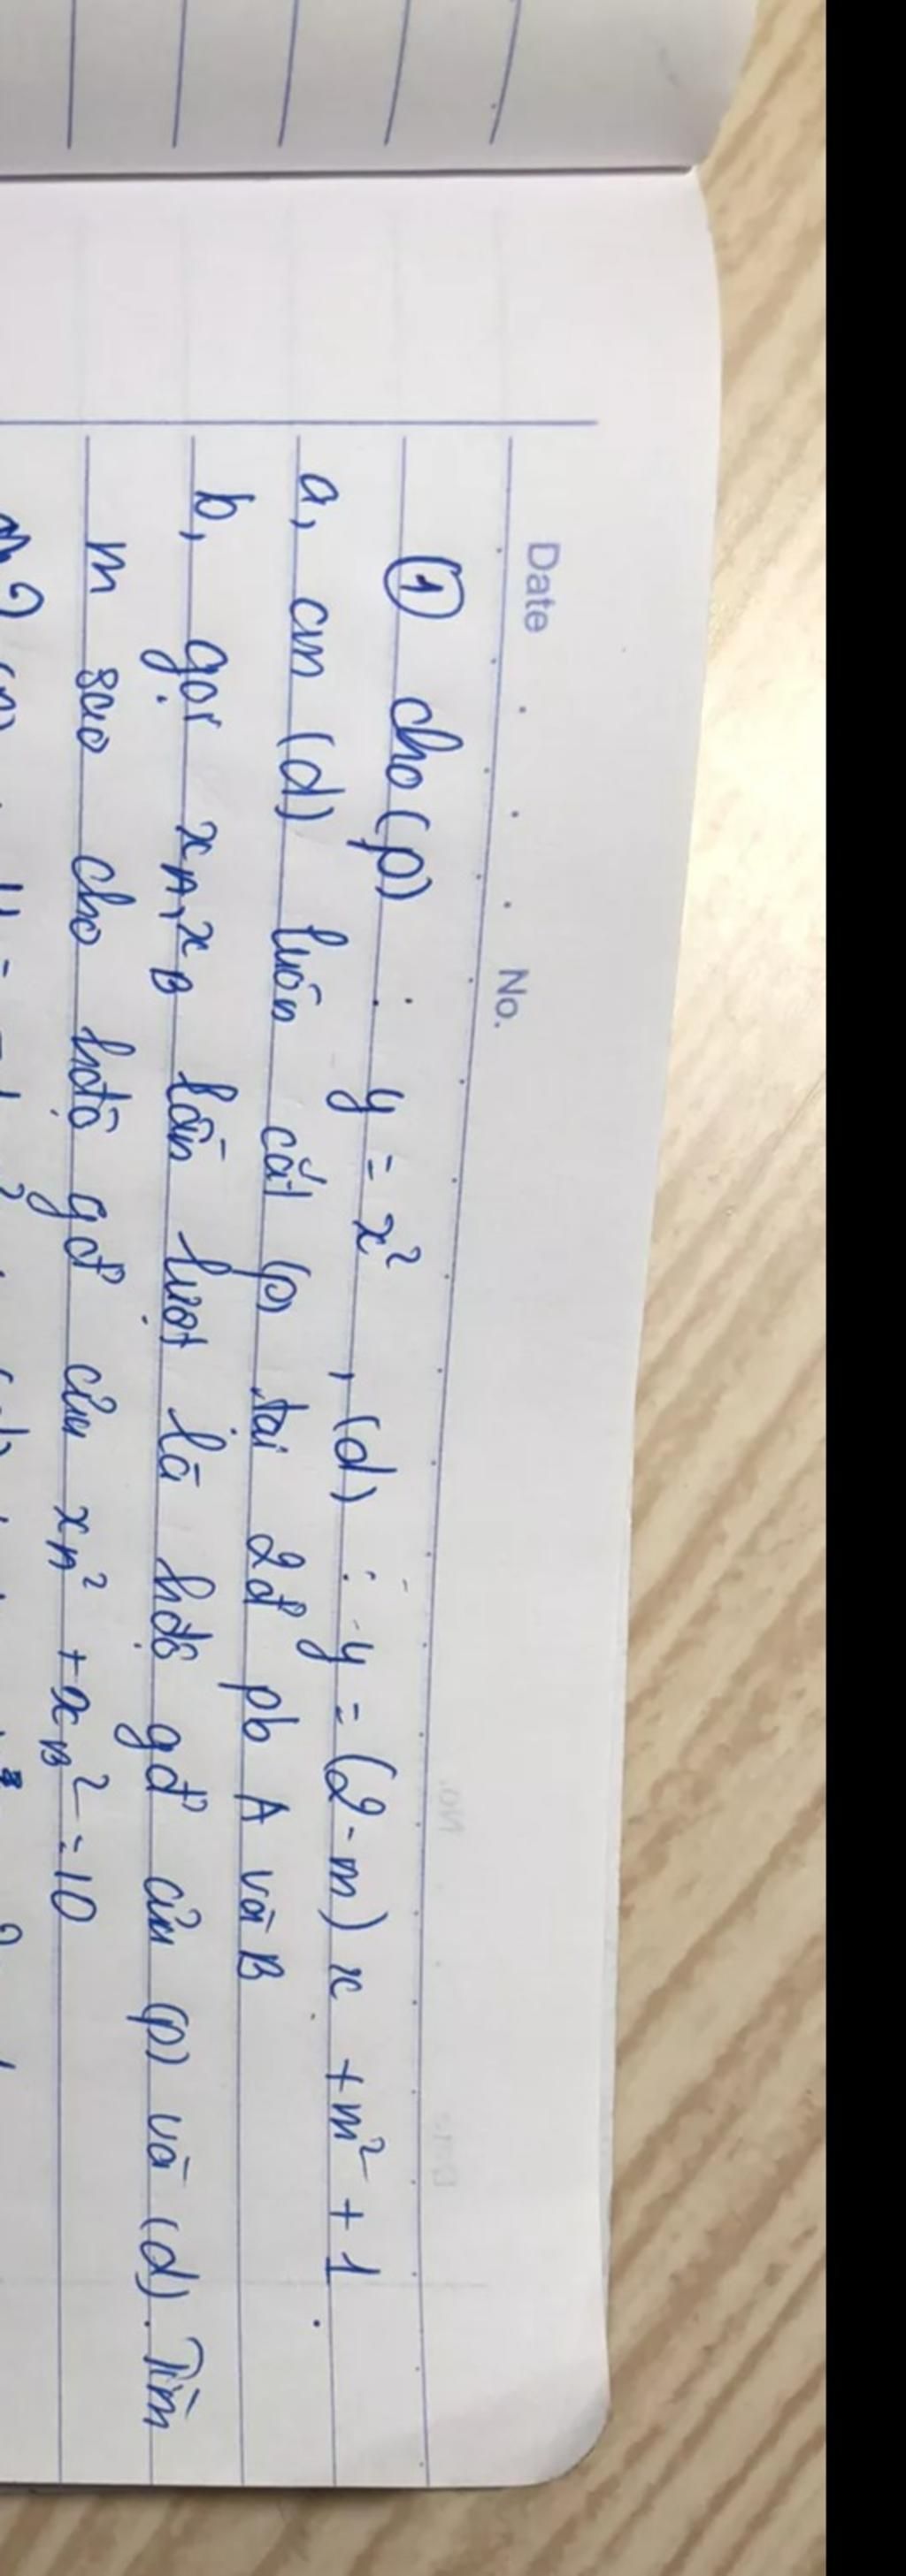 Date No.
① cho (p) : y = x² , (d) : y = (2-m) x + m² + 1 .
a, cm (d) luôn cắt (p) tại 2đ pb A và B
b, gọi xA, xB lần lượt là hđộ gđ của (p) và (d). Tìm
m sao cho hđộ gđ của xA² + xB² = 10